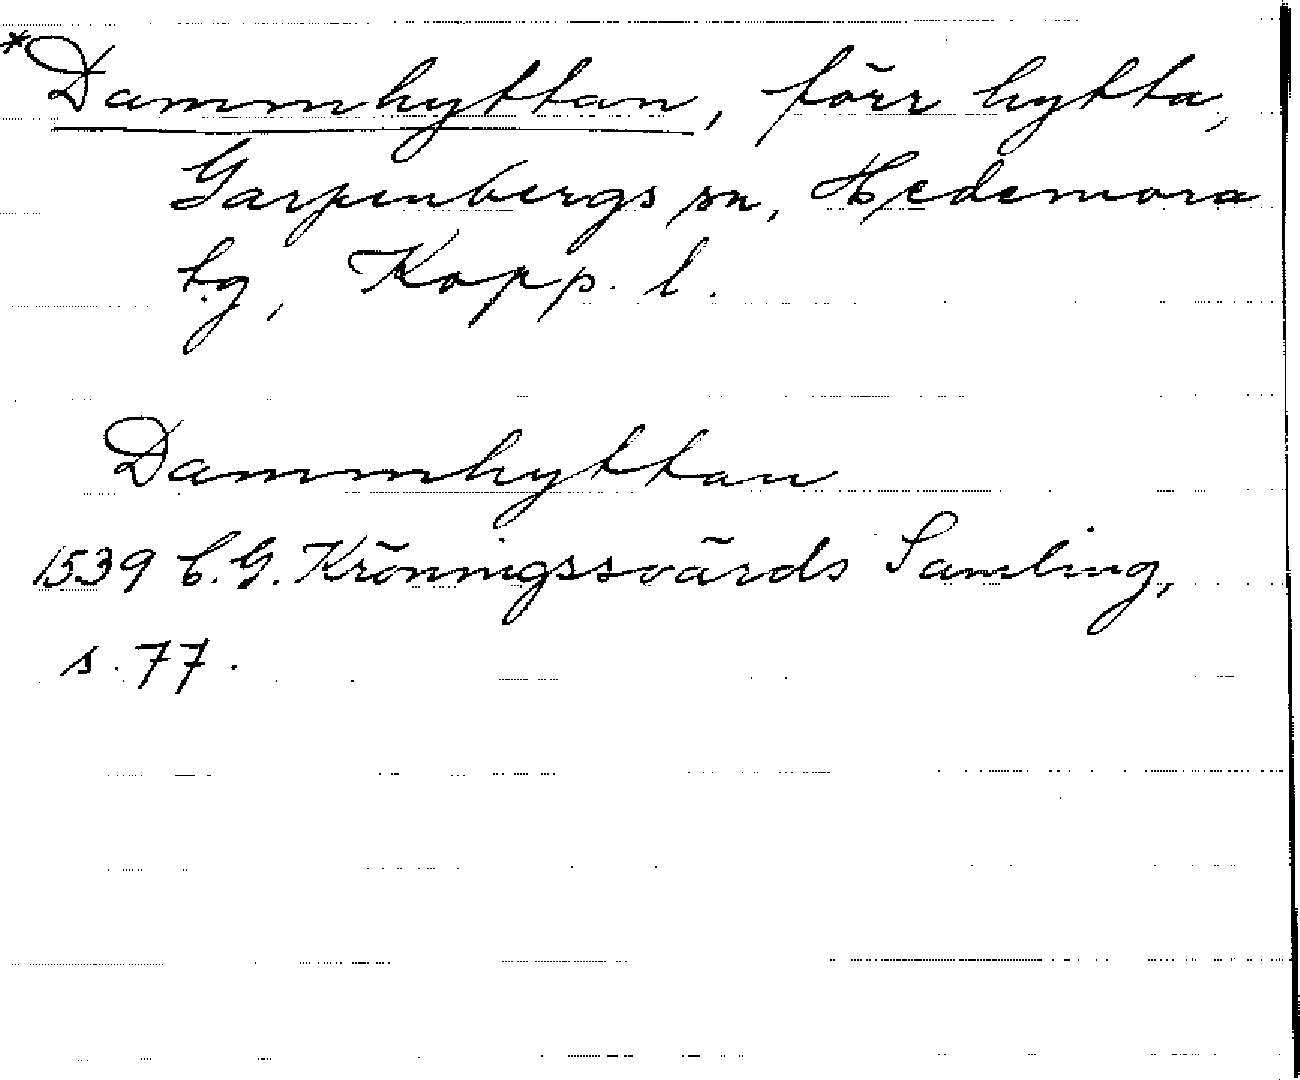 *Dammhyttan, förr hytta,
Garpenbergs sn, Hedemora
tg, Kopp. l.
Dammhyttan
1539 C.G. Kröningssvärds Samling,
s. 77.